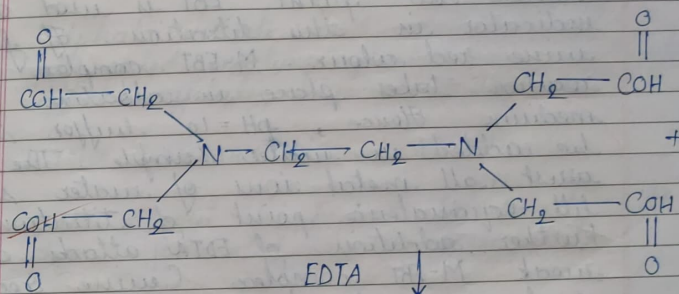 O O
|| ||
COH — CH2 CH2 — COH
N — CH2 — CH2 — N +
COH — CH2 CH2 — COH
|| ||
O EDTA ↓ O